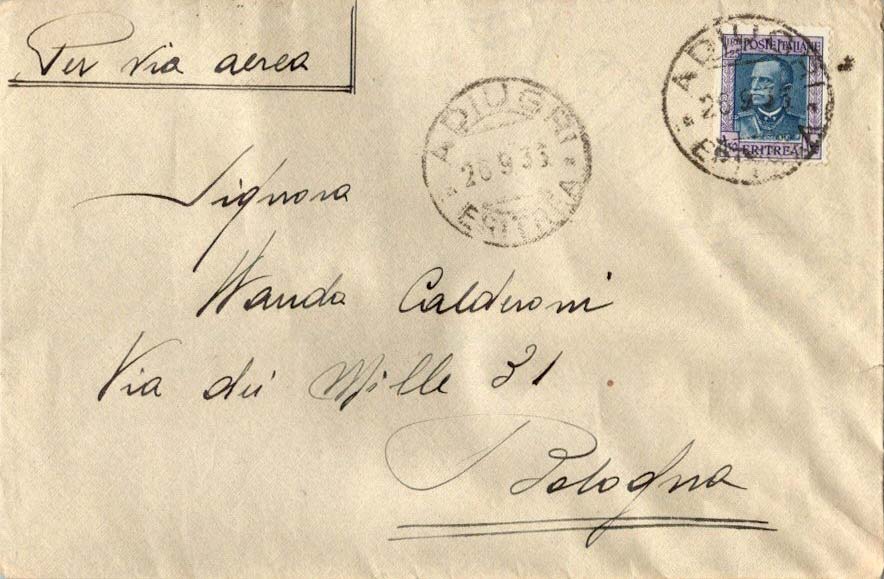 Per via aerea
POSTE ITALIANE
ERITREA
ADI UGRI
26 9 33
ERITREA
ADI UGRI
26 9 33
ERITREA
Signora
Wanda Calderoni
Via dei Mille 31
Bologna